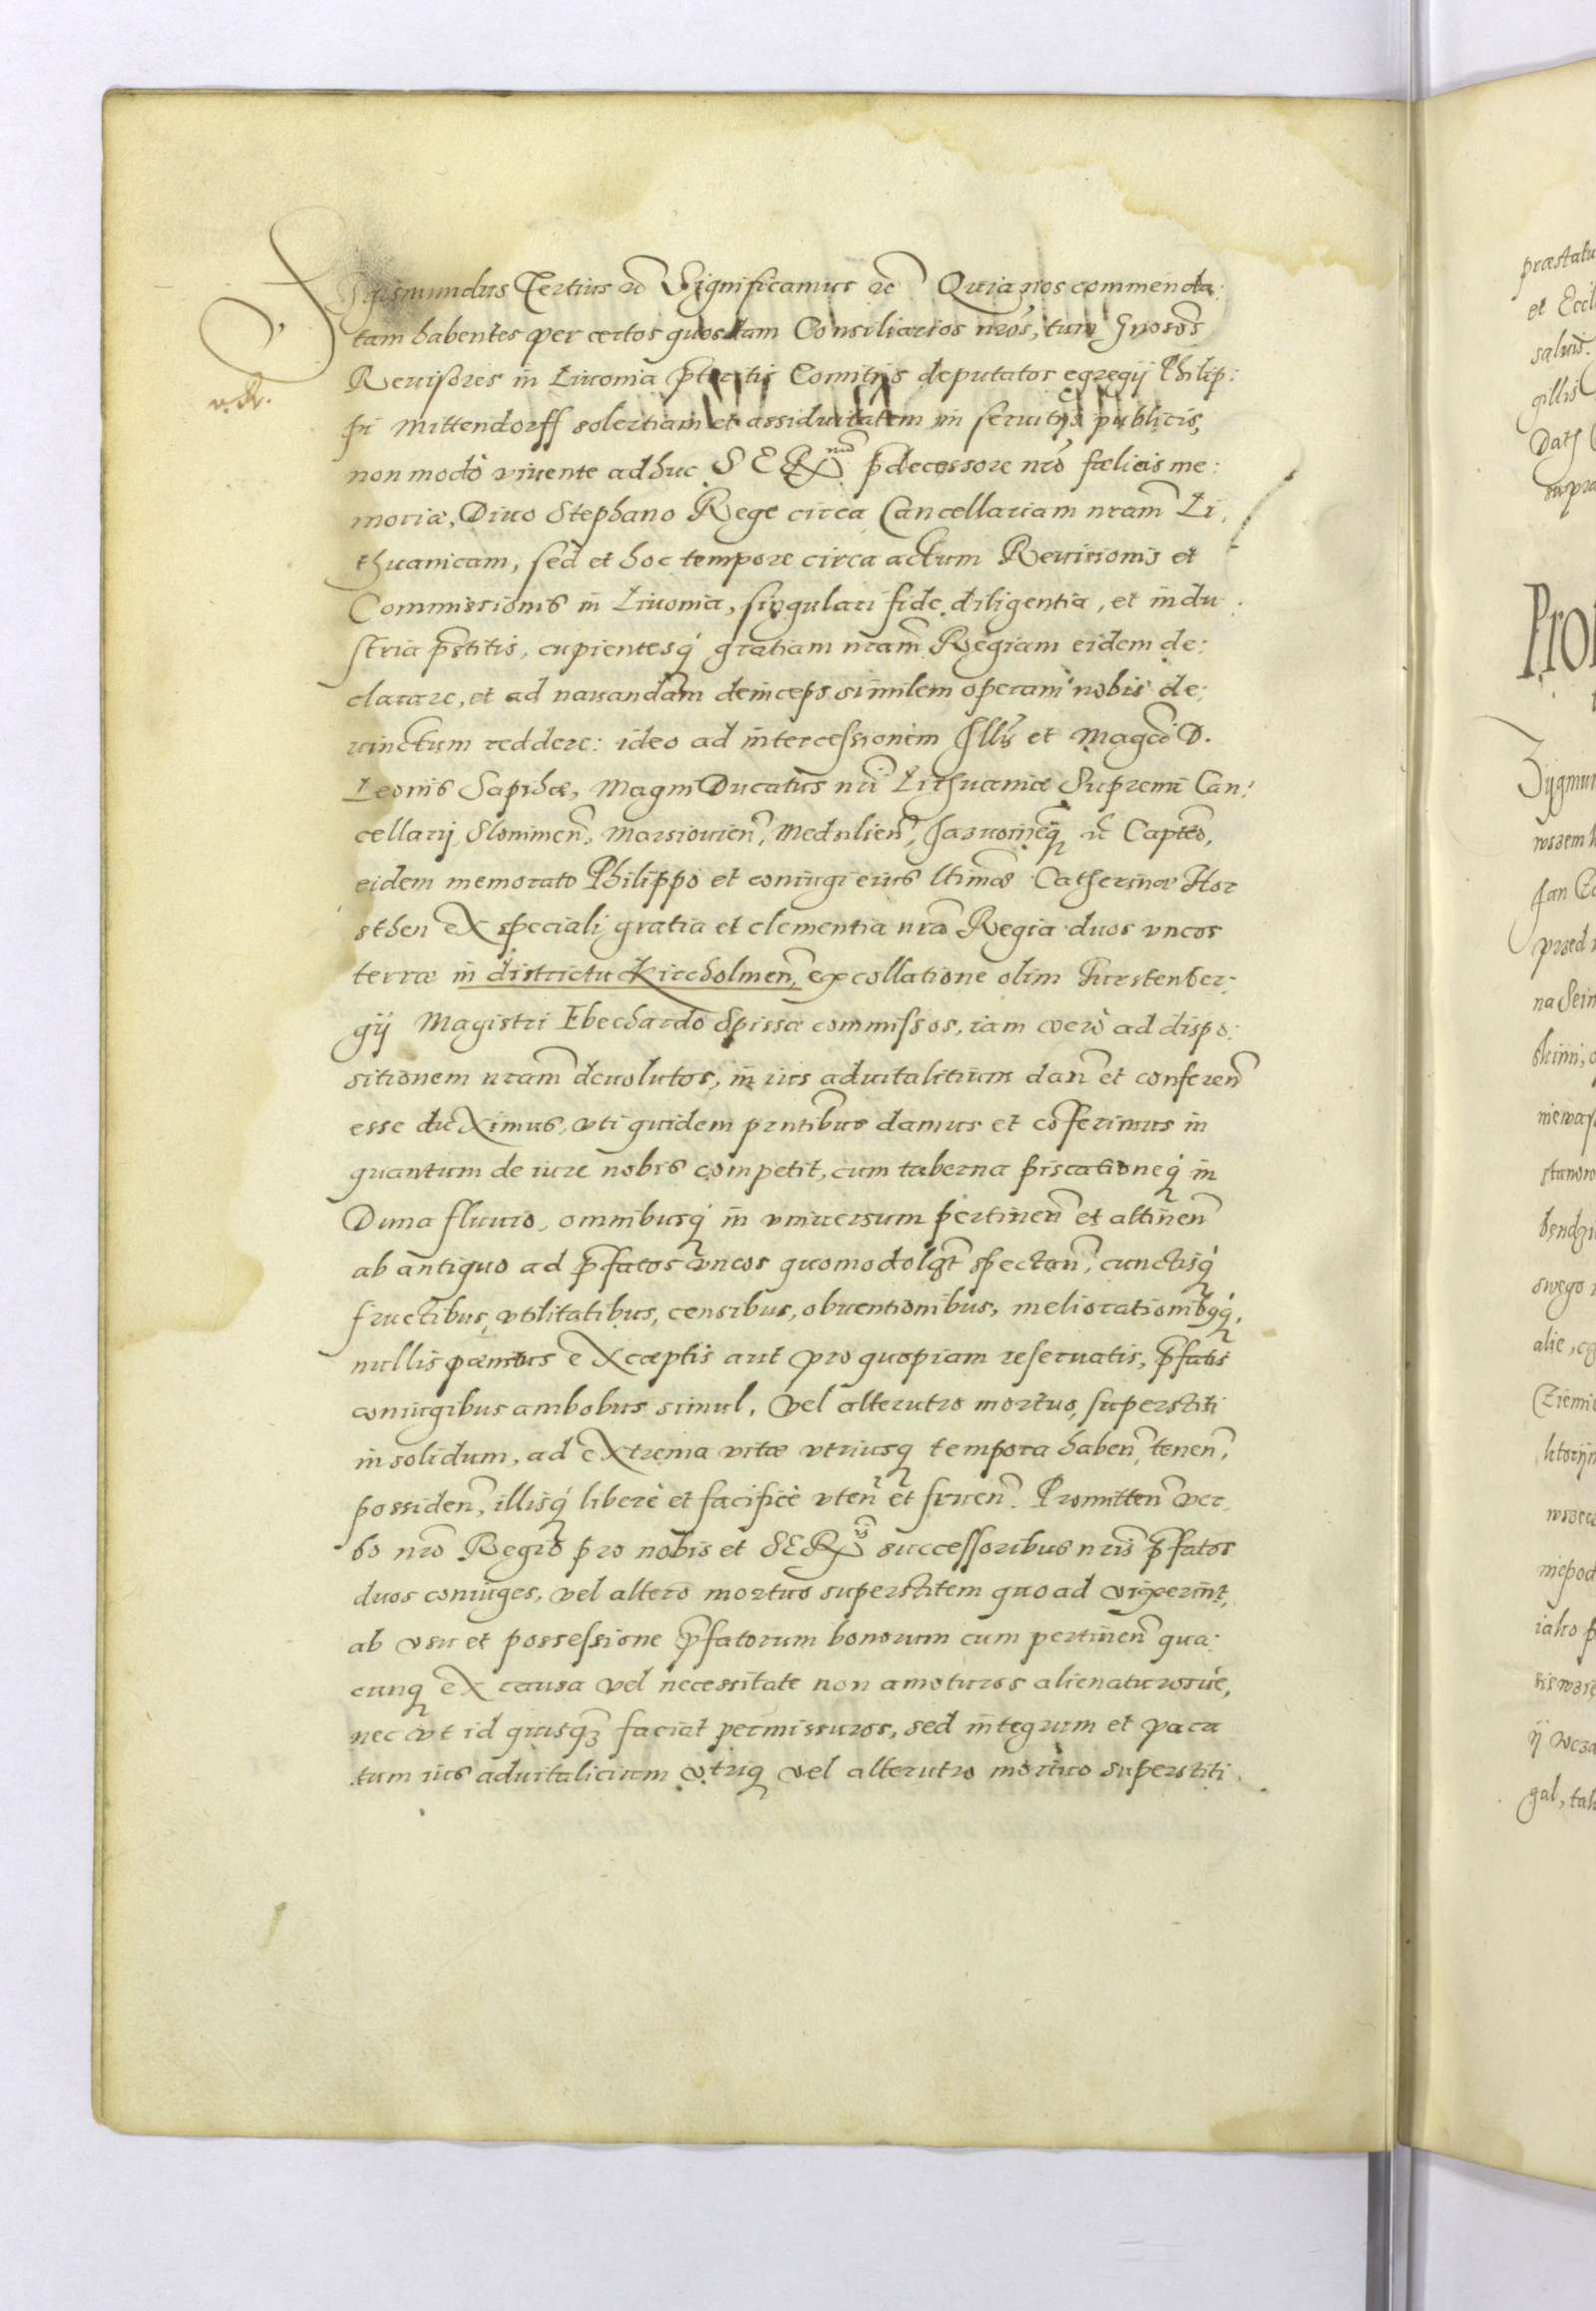 Sigismundus Tertius etc Significamus etc Quia nos commenda:
tam habentes per certos quosdam Consiliarios nros, tum Gnosos
Reuisores in Liuonia ptritis Comitijs deputatos egregij Philip:
pi Mittendorff solertiam et assiduitatem in seruitijs publicis,
non modò viuente adhuc SERmo pdecessore nro fœlicis me:
moriæ, Diuo Stephano Rege circa Cancellariam nram Li,
thuanicam, sed et hoc tempore circa actum Reuisionis et
Commissionis in Liuonia, singulari fide diligentia, et indu
stria pstitis, cupientesq gratiam nram Regiam eidem de:
clarare, et ad nauandam deinceps similem operam nobis de:
uinctum reddere: ideo ad intercessionem Illis et Magci D.
Leonis Sapihæ, Magni Ducatus nri Lithuaniæ Supremi Can:
cellarij Slonimen, Marsiouien, Mednlien, etc Capteo,
eidem memorato Philippo et coniugi eius Catherinæ Hor
sthen ex speciali gratia et clementia nra Regia duos vncos
terræ in districtu Kircholmen, ex collatione olim Furstenber:
gij Magistri Ebechardo Spissæ commissos, iam verò ad dispo:
sitionem nram deuolutos, in ius aduitalitium dan et conferen
esse duximus, vti quidem pntibus damus et coferimus in
quantum de iure nobis competit, cum taberna piscationeq in
Duna fluuio, omnibusq in vniuersum pertinen et attinen
ab antiquo ad pfatos vncos quomodolqt spectan, cunctisq
fructibus, vtilitatibus, censibus, obuentionibus, meliorationibqq,
nullis pœnitus exceptis aut pro quopiam reseruatis, pfatis
coniugibus ambobus simul, vel alterutro mortuo, superstiti
in solidum, ad extrema vitæ vtriusq tempora haben, tenen,
possiden, illisq liberè et pacificè vten et fruen. Promitten ver
bo nro Regio pro nobis et SERis successoribus nris pfatos
duos coniuges, vel altero mortuo superstitem quo ad vixerint,
ab vsu et possessione pfatorum bonorum cum pertinen qua:
cunq ex causa vel necessitate non amoturos alienaturosue,
nec vt id quisq faciat permissuros, sed integrum et paca
tum ius aduitalicium vtriq vel alterutro mortuo superstiti